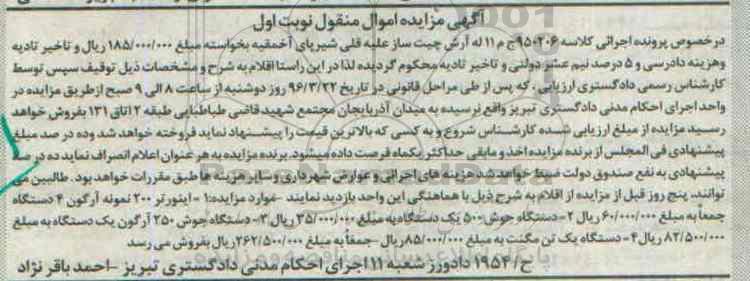 آگهی مزایده اموال منقول نوبت اول
در خصوص پرونده اجرائی کلاسه ۹۵۰۲۰۶ ج م ۱۱ له آرش چیت ساز علیه قلی شیرپای آخمقیه بخواسته مبلغ ۱۸۵/۰۰۰/۰۰۰ ریال و تاخیر تادیه
وهزینه دادرسی و ۵ درصد نیم عشر دولتی و تاخیر تادیه محکوم گردیده لذا در این راستا اقلام به شرح و مشخصات ذیل توقیف سپس توسط
کارشناس رسمی دادگستری ارزیابی، که پس از طی مراحل قانونی در تاریخ ۹۶/۳/۲۲ روز دوشنبه از ساعت ۸ الی ۹ صبح ازطریق مزایده در
واحد اجرای احکام مدنی دادگستری تبریز واقع نرسیده به میدان آذربایجان مجتمع شهید قاضی طباطبایی طبقه ۲ اتاق ۱۳۱ بفروش خواهد
رسید مزایده از مبلغ ارزیابی شده کارشناس شروع و به کسی که بالاترین قیمت را پیشنهاد نماید فروخته خواهد شد وده در صد مبلغ
پیشنهادی فی المجلس از برنده مزایده اخذ و مابقی حداکثر یکماه فرصت داده میشود. برنده مزایده به هر عنوان اعلام انصراف نماید ده در صد
پیشنهادی به نفع صندوق دولت ضبط خواهد شد هزینه های اجرائی و عوارض شهرداری وسایر هزینه ها طبق مقررات خواهد بود. طالبین می
توانند، پنج روز قبل از مزایده از اقلام به شرح ذیل با هماهنگی این واحد بازدید نمایند -موارد مزایده:۱ - اینورتر ۲۰۰ نمونه آرگون ۴ دستگاه
جمعاً به مبلغ ۶۰/۰۰۰/۰۰۰ ریال ۲- دستگاه جوش ۵۰۰ یک دستگاه به مبلغ ۳۵/۰۰۰/۰۰۰ ریال ۳- دستگاه جوش ۲۵۰ آرگون یک دستگاه به مبلغ
۸۲/۵۰۰/۰۰۰ ریال ۴- دستگاه یک تن مگنت به مبلغ ۸۵/۰۰۰/۰۰۰ ریال -جمعاً به مبلغ ۲۶۲/۵۰۰/۰۰۰ ریال بفروش می رسد
ح/ ۱۹۵۴ دادورز شعبه ۱۱ اجرای احکام مدنی دادگستری تبریز -احمد باقر نژاد